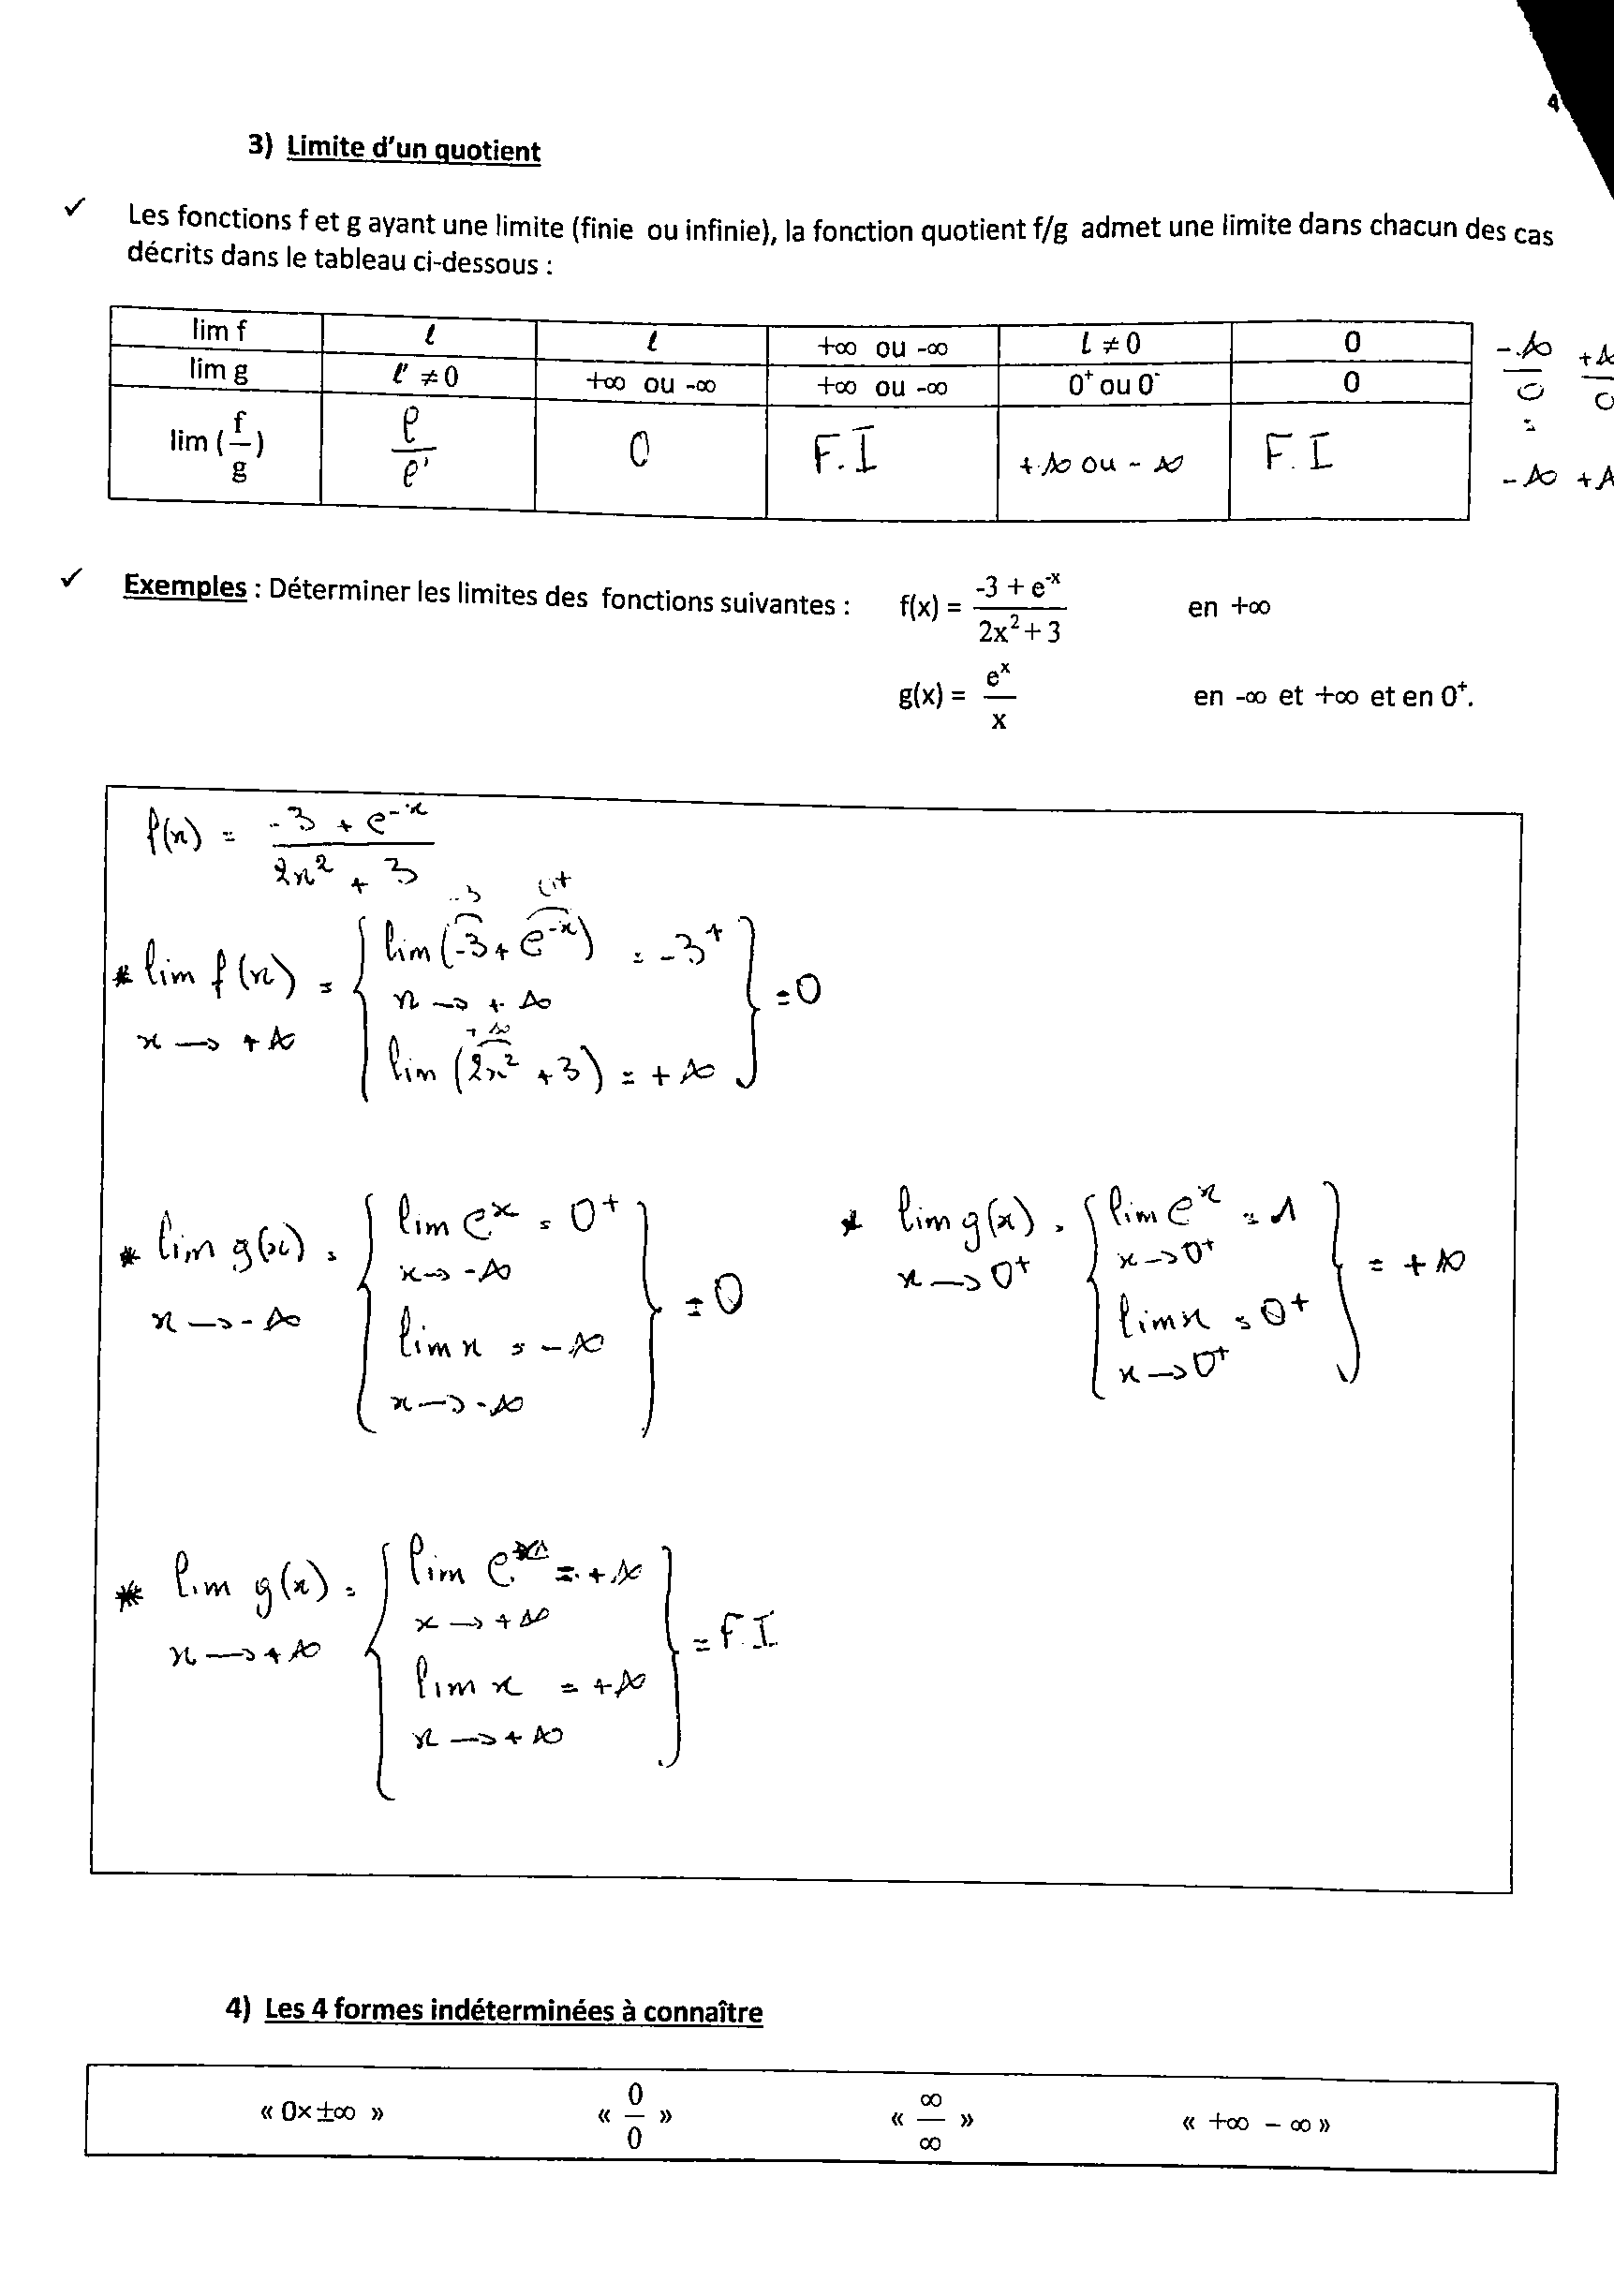 4
3) Limite d'un quotient
✓ Les fonctions f et g ayant une limite (finie ou infinie), la fonction quotient f/g admet une limite dans chacun des cas
décrits dans le tableau ci-dessous :
lim f | ℓ | ℓ | +∞ ou -∞ | L ≠ 0 | 0
lim g | ℓ' ≠ 0 | +∞ ou -∞ | +∞ ou -∞ | 0⁺ ou 0⁻ | 0
lim (f/g) | ℓ/ℓ' | 0 | F.I | +∞ ou -∞ | F.I
-∞/0 = -∞
+∞/0 +∞
✓ Exemples : Déterminer les limites des fonctions suivantes : f(x) = (-3 + e⁻ˣ)/(2x² + 3) en +∞
g(x) = eˣ/x en -∞ et +∞ et en 0⁺.
f(x) = (-3 + e⁻ˣ)/(2x² + 3)
-3 0⁺
* lim f(x) = { lim (-3 + e⁻ˣ) = -3⁺
x → +∞ x → +∞
+∞
lim (2x² + 3) = +∞ } = 0
* lim g(x) = { lim eˣ = 0⁺
x → -∞ x → -∞
lim x = -∞ } = 0
x → -∞
* lim g(x) = { lim eˣ = 1
x → 0⁺ x → 0⁺
lim x = 0⁺ } = +∞
x → 0⁺
* lim g(x) = { lim eˣ = +∞
x → +∞ x → +∞
lim x = +∞ } = F.I
x → +∞
4) Les 4 formes indéterminées à connaître
« 0×±∞ » « 0/0 » « ∞/∞ » « +∞ - ∞ »